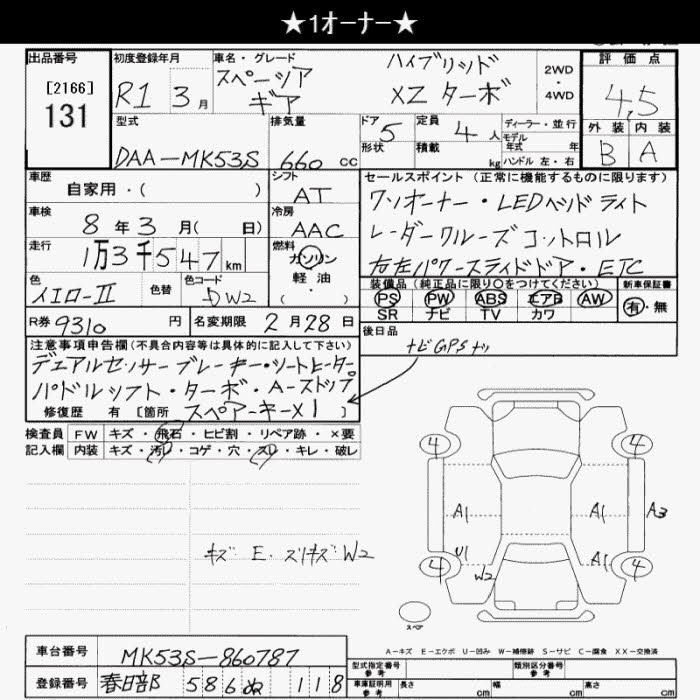 ★1オーナー★
出品番号 初度登録年月 車名・グレード ハイブリッド 2WD・4WD 評価点
[2166] R1 3月 スペーシア ギア XZ ターボ 4,5
131 型式 排気量 ドア 5 定員 4人 ディーラー・並行 外装 内装
形状 積載 kg モデル年式 年 ハンドル 左・右
DAA-MK53S 660 cc B A
車歴 自家用・( ) シフト AT セールスポイント (正常に機能するものに限ります)
車検 8年3月( 日) 冷房 AAC ワンオーナー・LEDヘッドライト
走行 1万3千547km 燃料 ガソリン 軽油 ( ・ ) レーダークルーズコントロル
色 イエローII 色替 色コード DW2 右左パワースライドドア・ETC
装備品 (純正品に限り○をつけてください) 新車保証書
PS PW ABS エアB AW 有・無
SR ナビ TV カワ
R券 9310円 名変期限 2月28日 後日品
注意事項申告欄(不具合内容等は具体的に記入して下さい) ナビGPSナシ
デュアルセンサーブレーキ・シートヒーター
パドルシフト・ターボ・A-ストップ
修復歴 有 [箇所 スペアーキーX1 ]
検査員 FW キズ・飛石・ヒビ割・リペア跡・×要
記入欄 内装 キズ・汚レ・コゲ・穴・スレ・キレ・破レ
4 4
A1 A1 A3
U1 A1
キズ E・スリキズ W2
4 W2 4
スペア
A-キズ E-エクボ U-凹み W-補修跡 S-サビ C-腐食 XX-交換済
車台番号 MK53S-860787 型式指定番号 参考 類別区分番号 参考
登録番号 春日部 586 ぬ 118 車庫証明用 参考 長さ cm 幅 cm 高さ cm